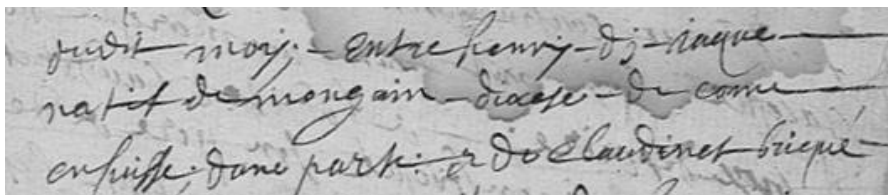 dudit moys. Entre henry dj Jaque
natif de mongain diocese de come
en suisse, dune part. et de Claudinet